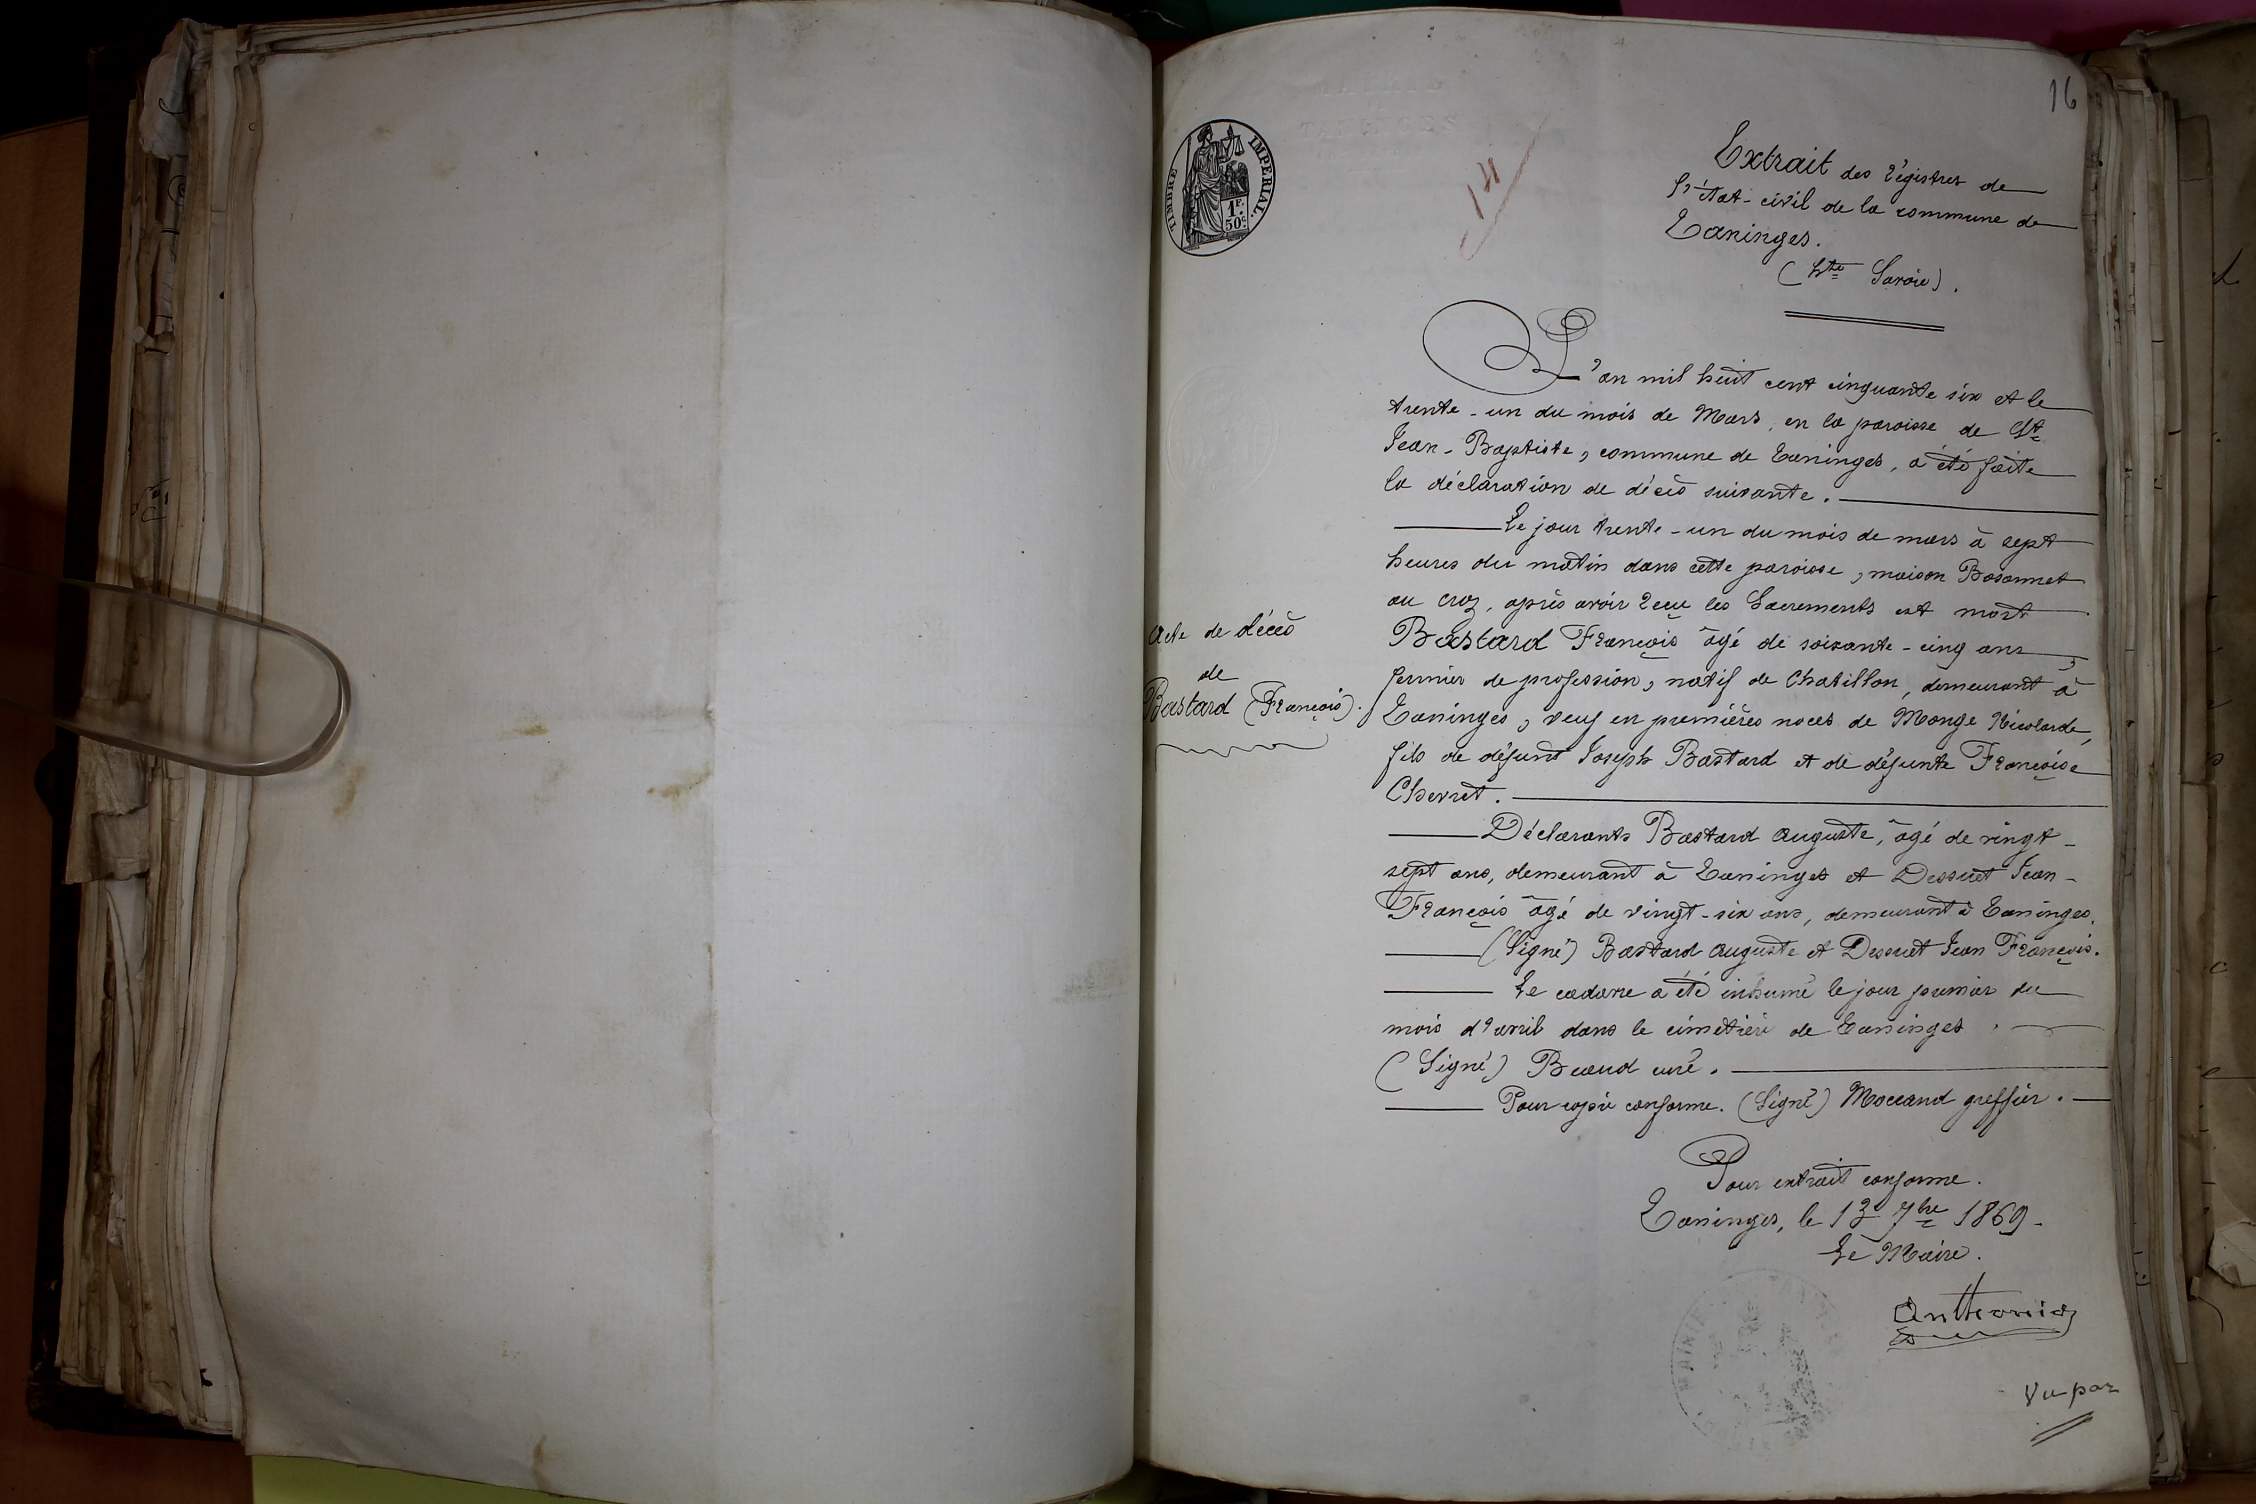 16
TIMBRE IMPERIAL.
1F.
50c.
14
Extrait des régistres de
l'état-civil de la commune de
Taninges.
(Hte Savoie).
L'an mil huit cent cinquante six et le
trente-un du mois de Mars, en la paroisse de St
Jean-Baptiste, commune de Taninges, a été faite
la déclaration de décès suivante.
Le jour trente-un du mois de mars à sept
heures du matin dans cette paroisse, maison Bosonnet
au Croz, après avoir reçu les Sacrements est mort
Bastard François âgé de soixante-cinq ans,
fermier de profession, natif de Chatillon, demeurant à
Taninges, veuf en premières noces de Monge Nicolarde,
fils de défunt Joseph Bastard et de défunte Françoise
Chevret.
Acte de décès
de
Bastard (François).
Déclarants Bastard Auguste, âgé de vingt-
sept ans, demeurant à Taninges et Dessuet Jean-
François âgé de vingt-six ans, demeurant à Taninges.
(Signé) Bastard Auguste et Dessuet Jean François.
Le cadavre a été inhumé le jour premier du
mois d'avril dans le cimetière de Taninges.
(Signé) curé.
Pour copie conforme. (Signé) Moccand greffier.
Pour extrait conforme.
Taninges, le 13 7bre 1869.
Le Maire.
Anthonioz
Vu par